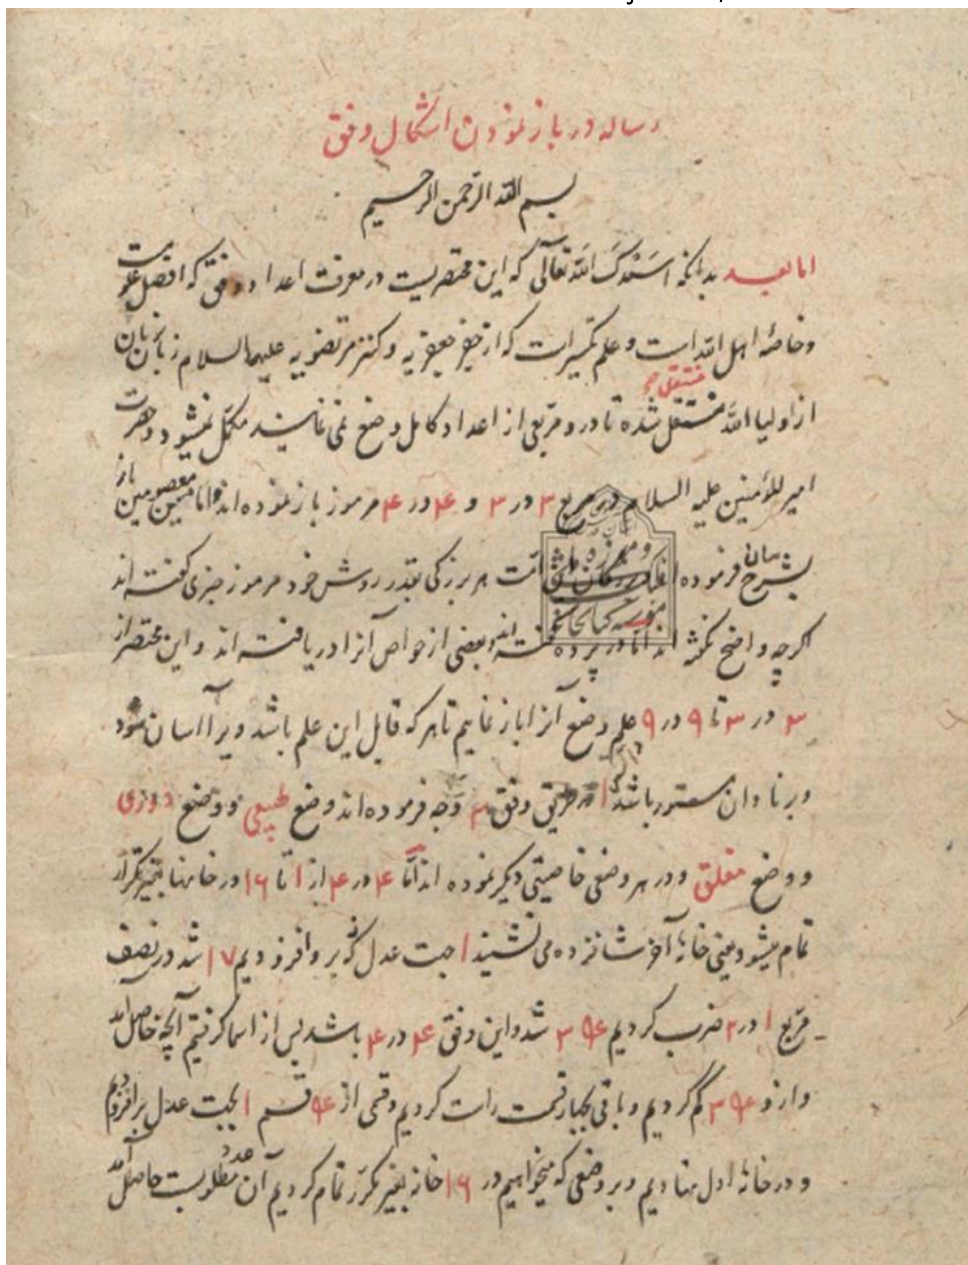 رساله در باز نمودن اشکال وفق
بسم الله الرحمن الرحیم
اما بعد بدانکه اسعدک الله تعالی که این مختصریست در معرفت اعداد وفق که افضل علومست
و خاصهٔ اهل الله است و علم تکسیر است که از جفر جعفریه و کنز مرتضویه علیهما السلام زبان بزبان
از اولیا الله منتقل شده تا در و مربعی از اعداد کامل وضع نمی نمایند مکمل نمیشود و حضرت
امیر المؤمنین علیه السلام در مربع ۳ در ۳ و ۴ در ۴ مرموز باز نموده اند و اما معصومین باز
بشرح بیان فرموده اند هر بزرگی بقدر روش خود مرموز چیزی گفته اند
اگرچه واضح نگفته اند اما در پرده گفته اند و بعضی از خواص آنرا دریافته اند و این مختصر از
۳ در ۳ تا ۹ در ۹ علم وضع آنرا باز نماییم تا هر که قابل این علم باشد ویرا آسان شود
و بر نادان مستور باشد وفق ۳ وجه فرموده اند وضع طبیعی و وضع دوری
و وضع مغلق و در هر وضعی خاصیتی دیگر نموده اند اما ۴ در ۴ از ۱ تا ۱۶ در خانها بغیر تکرار
تمام میشود یعنی خانهٔ آخر شانزده می نشیند ۱ جهت عدل بر و افزودیم ۱۷ شد در نصف
مربع ۱ در ۲ ضرب کردیم ۳۴ شد و این وفق ۴ در ۴ باشد پس از اسما گرفتیم آنچه حاصل آمد
و ازو ۳۴ کم کردیم و باقی بچهار قسمت راست کردیم وقتی از ۴ قسم ۱ بجهت عدل بر افزودیم
و در خانهٔ اول نهادیم و بر وضعی که میخواهیم در ۱۶ خانه بغیر مکرر تمام کردیم آن عدد مطلوبست حاصل آمد